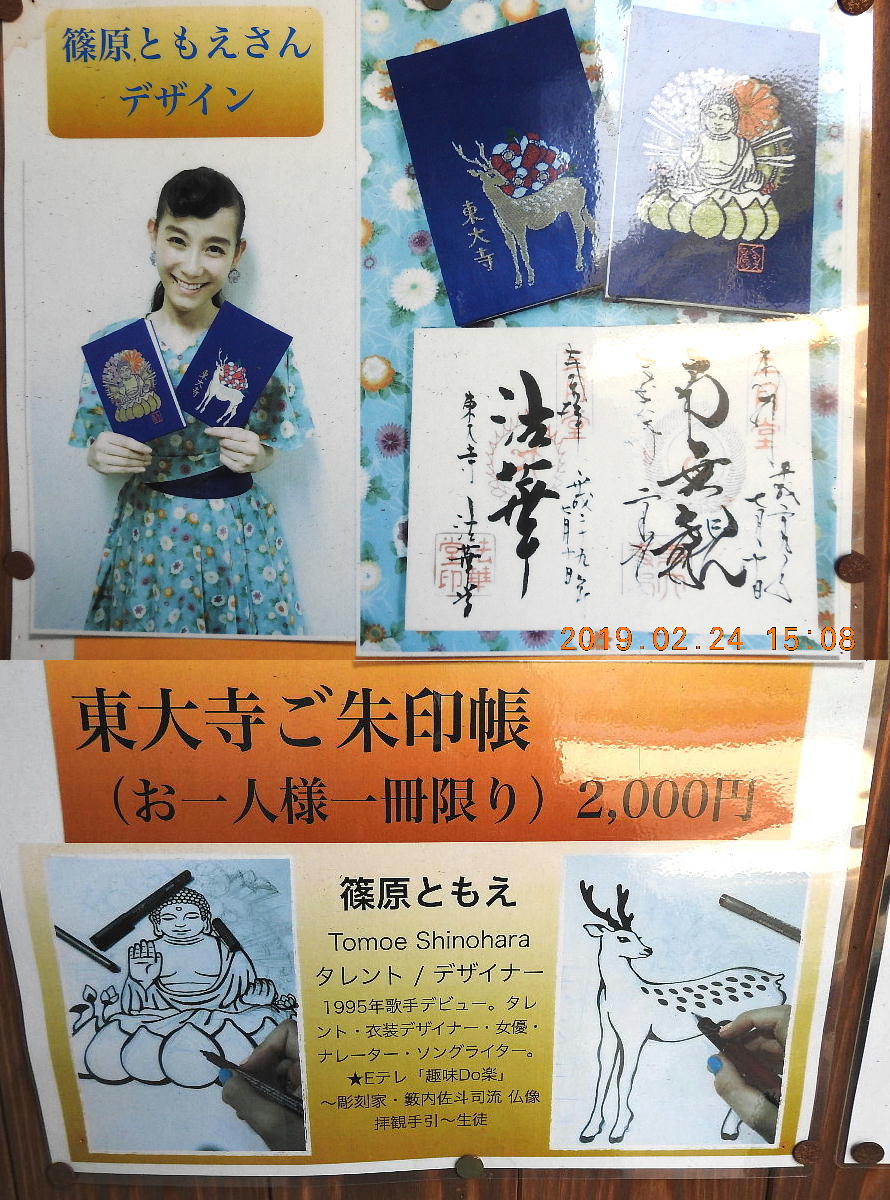 篠原ともえさん
デザイン
東大寺
東大寺
法華
東大寺
法華堂印
南無観
2019.02.24 15:08
東大寺ご朱印帳
(お一人様一冊限り) 2,000円
篠原ともえ
Tomoe Shinohara
タレント / デザイナー
1995年歌手デビュー。タレ
ント・衣装デザイナー・女優・
ナレーター・ソングライター。
★Eテレ「趣味Do楽」
〜彫刻家・籔内佐斗司流 仏像
拝観手引〜生徒